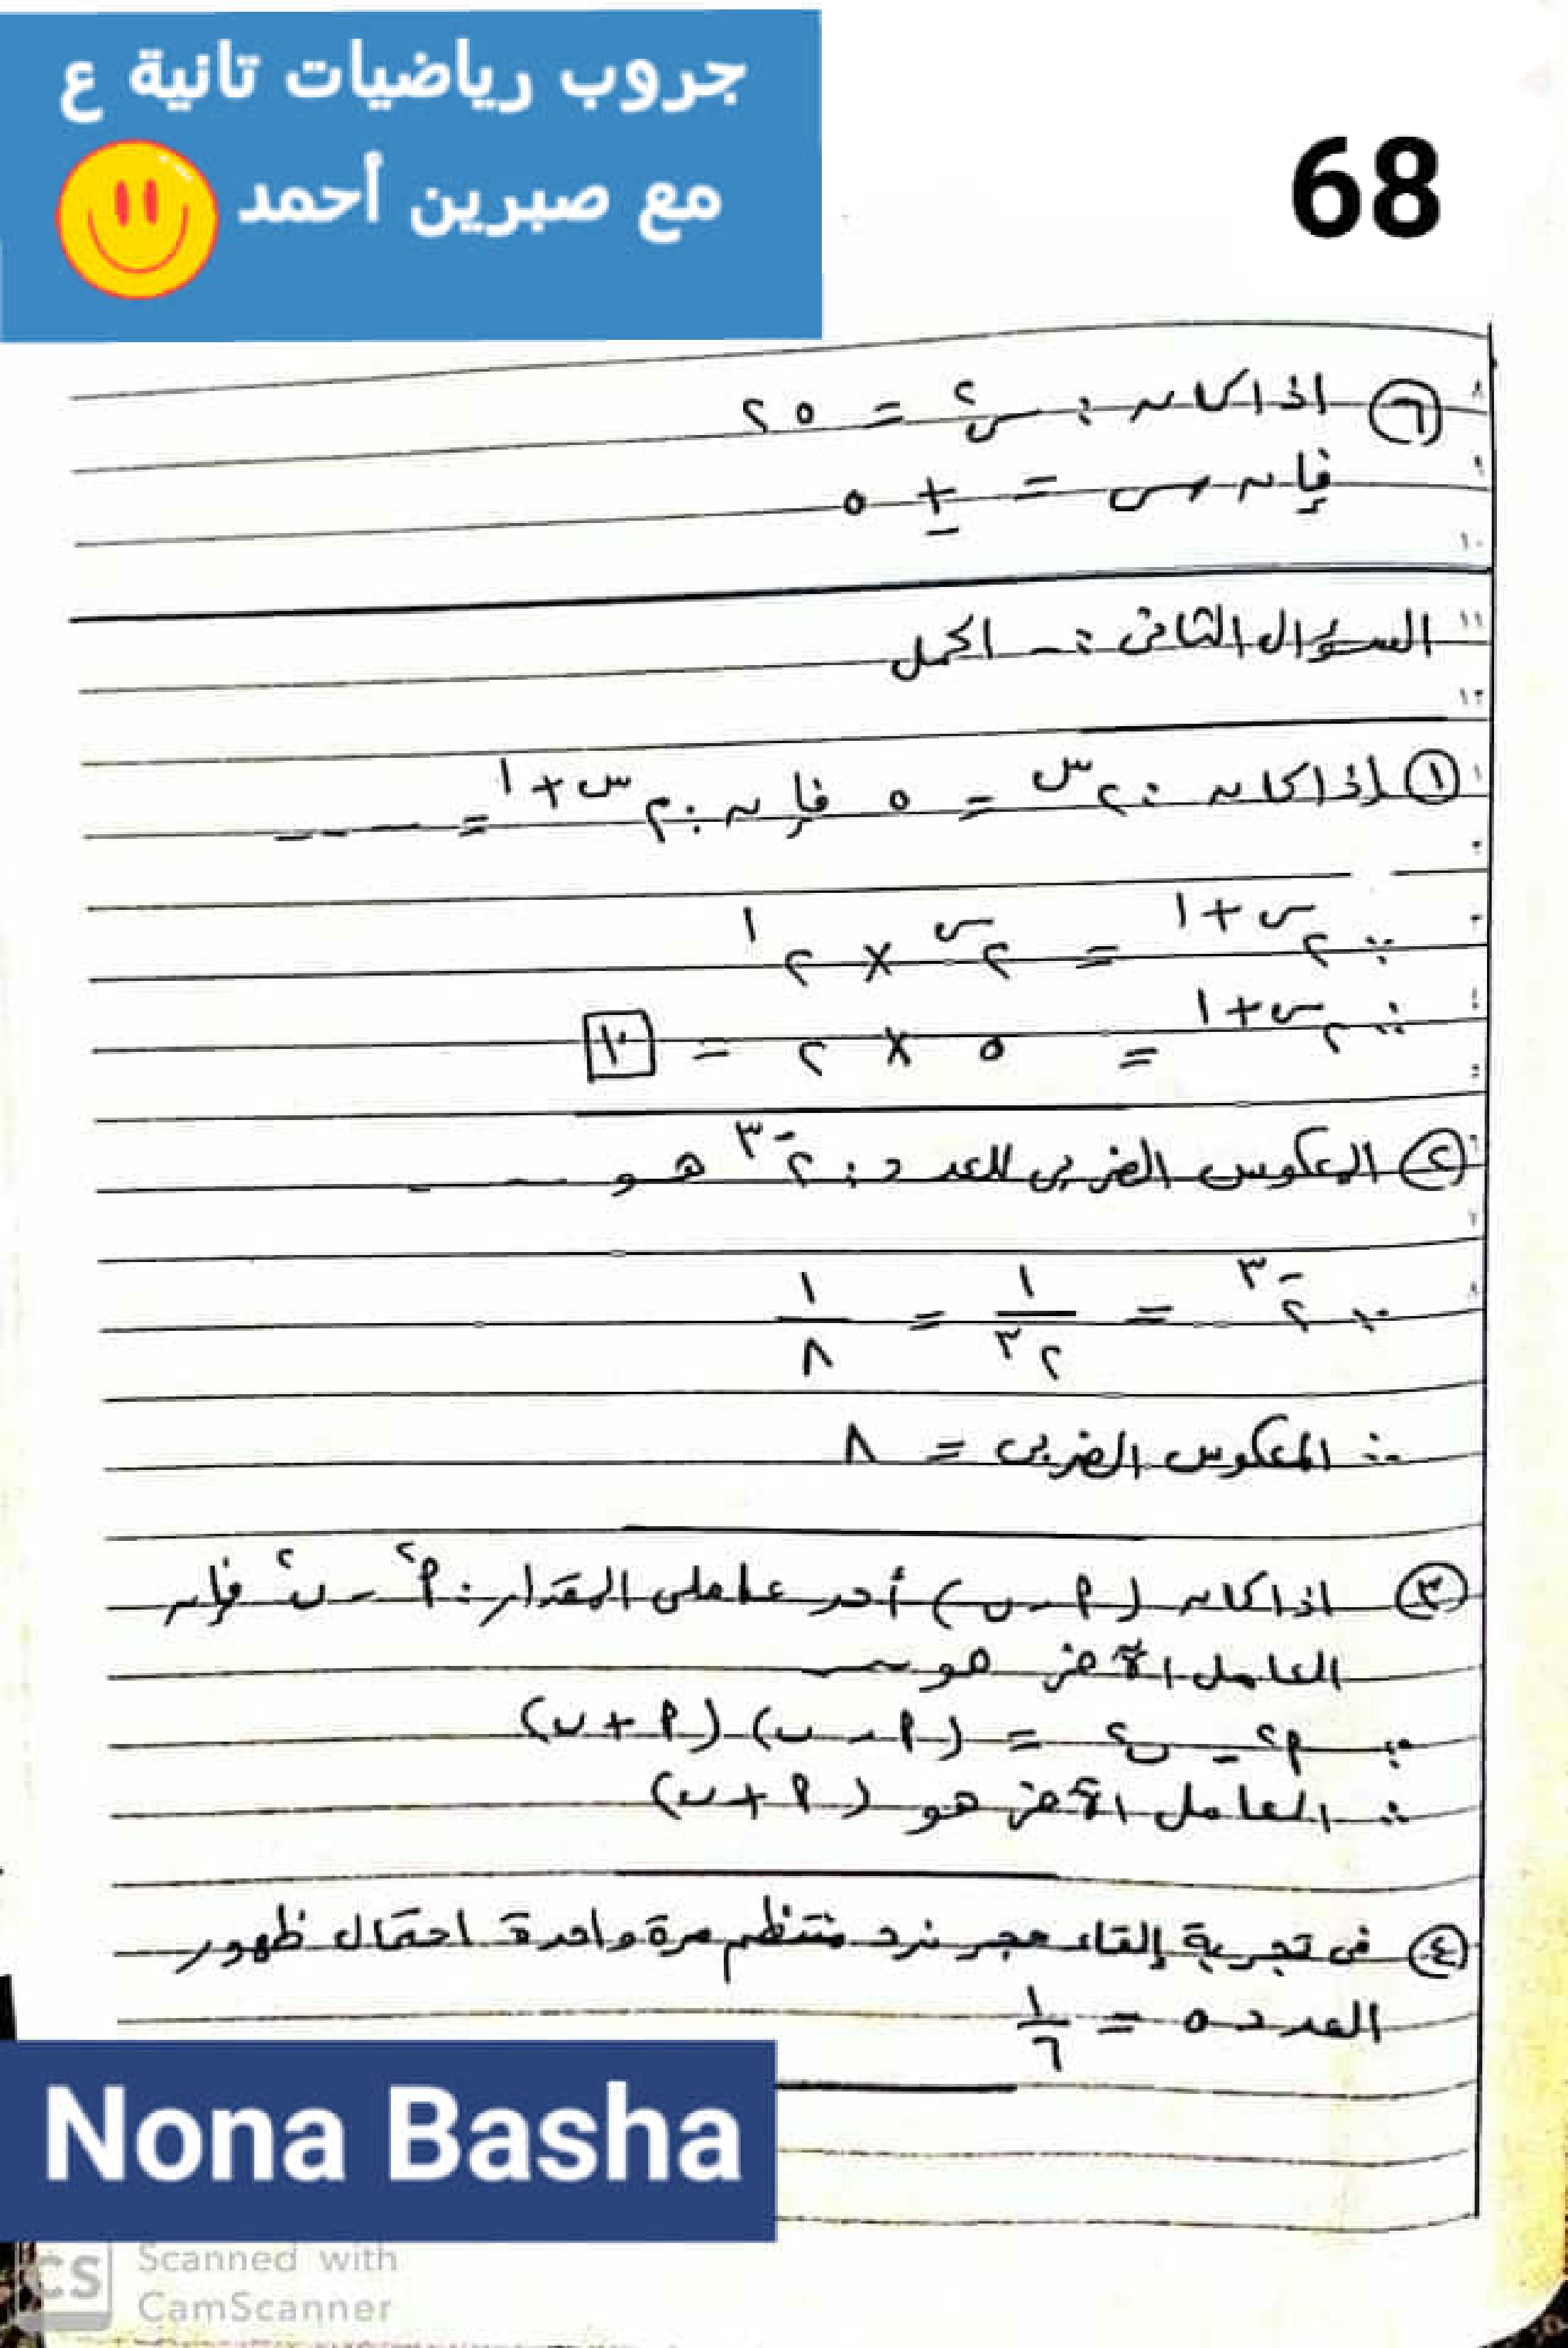 جروب رياضيات تانية ع
مع صبرين أحمد
68
٦ اذا كان : س٢ = ٢٥
فإن س = ± ٥
السؤال الثانى :- اكمل
١ إذا كان : ٢^س = ٥ فإن : ٢^(س+١) = ----
∵ ٢^(س+١) = ٢^س × ٢^١
∴ ٢^(س+١) = ٥ × ٢ = ١٠
٢ المعكوس الضربى للعدد : ٢^-٣ هو ----
∵ ٢^-٣ = ١/٢^٣ = ١/٨
∴ المعكوس الضربى = ٨
٣ اذا كان (٢ - ب) أحد عاملى المقدار : ٢^٢ - ب^٢ فإن
العامل الآخر هو ---
∵ ٢^٢ - ب^٢ = (٢ - ب) (٢ + ب)
∴ العامل الآخر هو (٢ + ب)
٤ فى تجربة إلقاء حجر نرد منتظم مرة واحدة احتمال ظهور
العدد ٥ = ١/٦
Nona Basha
CS Scanned with
CamScanner